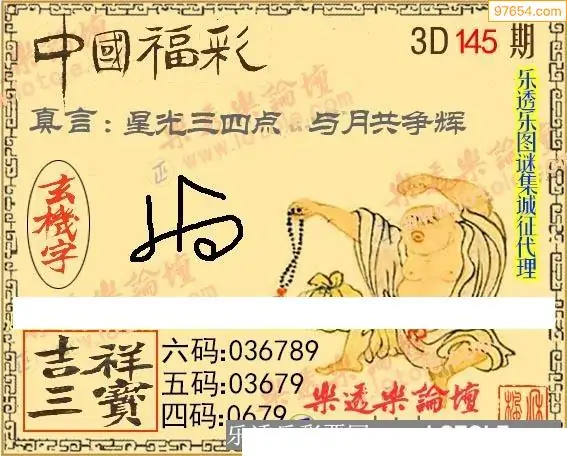 97654.com
中國福彩
3D 145 期
真言：星光三四点 与月共争辉
乐透乐图谜集城征代理
玄機字
吉祥三寶
六码:036789
五码:03679
四码:0679
樂透樂論壇